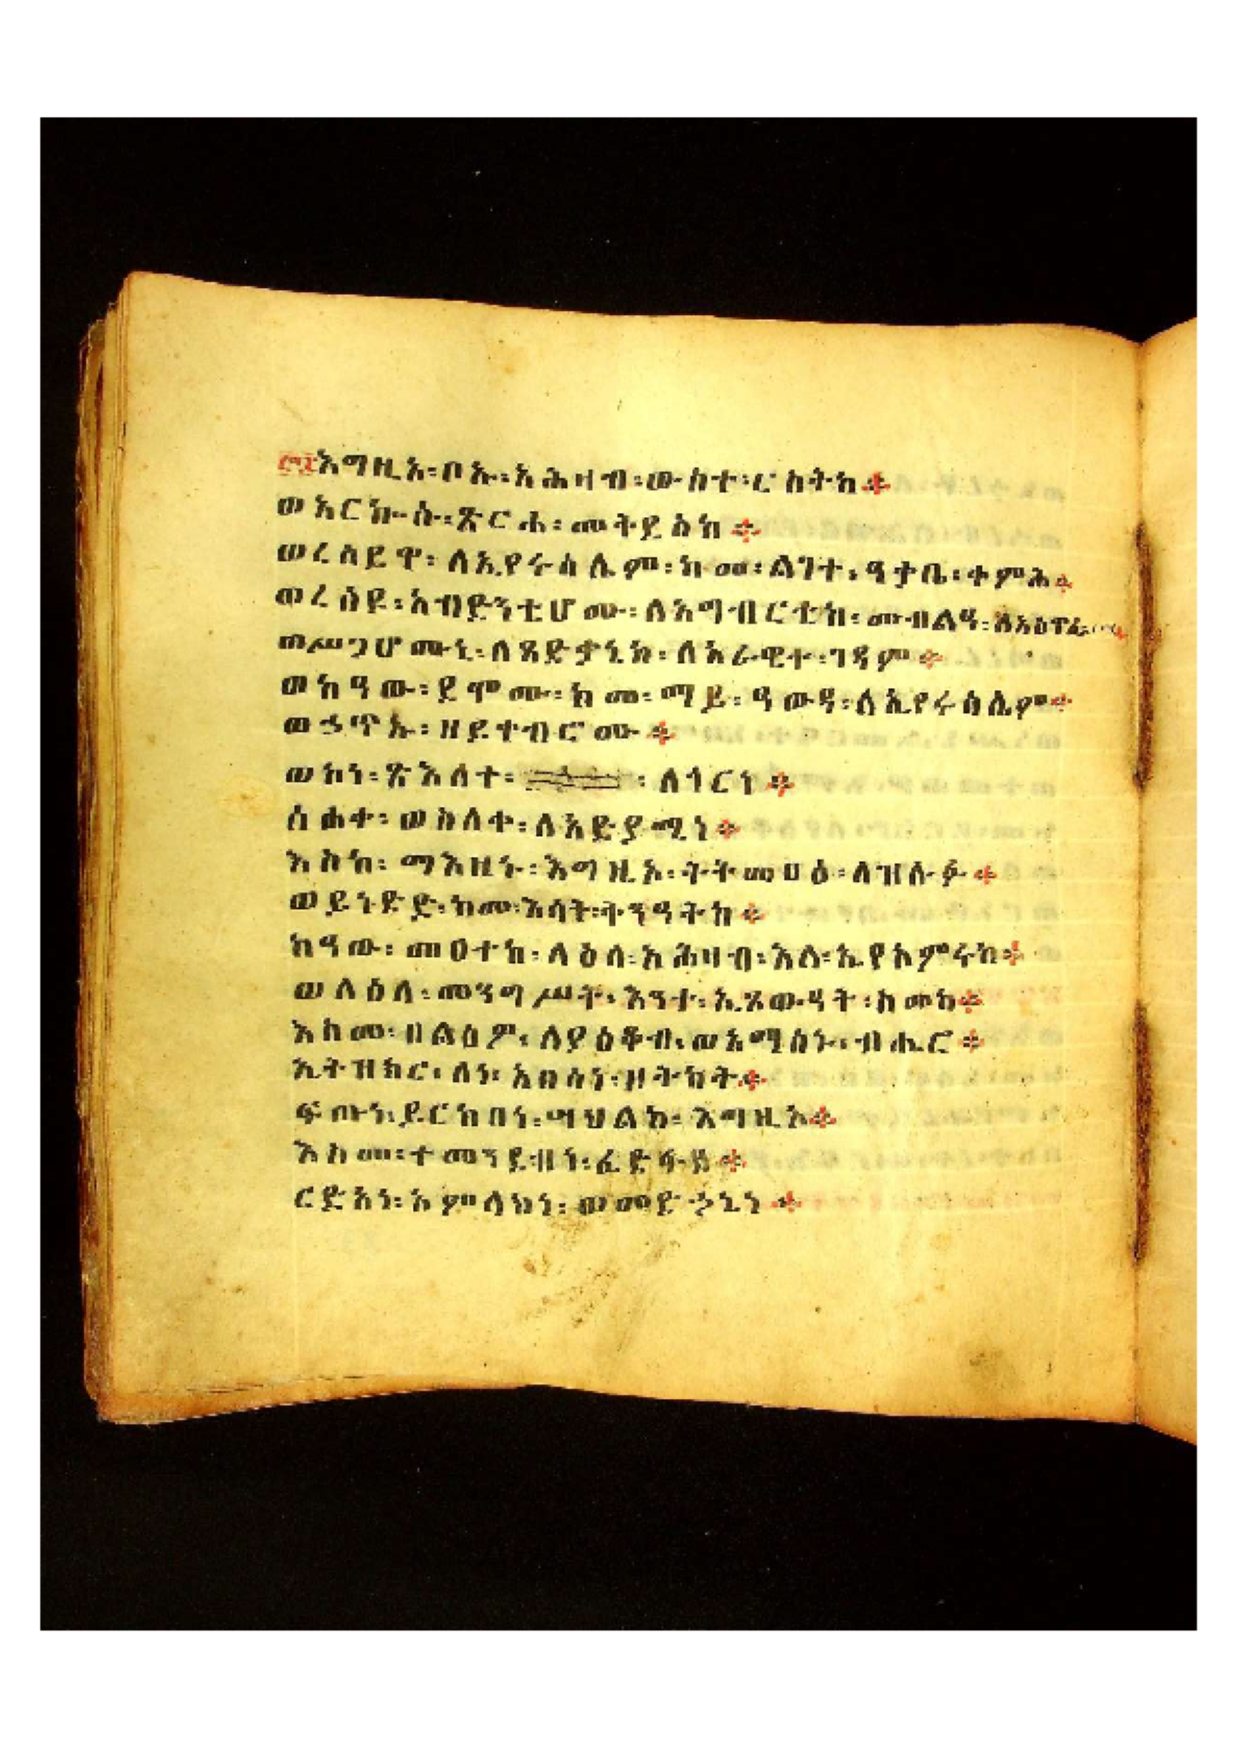 እግዚኦ፡ቦኡ፡አሕዛብ፡ውስተ፡ርስትከ።
ወአርኰሱ፡ጽርሐ፡መትደስከ።
ወረሰይዋ፡ለኢየሩሳሌም፡ከመ፡ልገተ፡ዓቃቤ፡ቀምሕ።
ወረሰዩ፡አብድንቲሆሙ፡ለአግብርቲከ፡መብልዓ፡
ወሥጋሆሙኒ፡ለጻድቃኒከ፡ለአራዊተ፡ገዳም።
ወከዓው፡ደሞሙ፡ከመ፡ማይ፡ዓውዳ፡ለኢየሩሳሌም።
ወኃጥኡ፡ዘይተብሮሙ።
ወኮነ፡ጽእለተ፡ ፡ለጎርነ።
ስሐቀ፡ወስላቀ፡ለአድያሚነ።
እስከ፡ማእዜኑ፡እግዚኦ፡ትትመዐዕ፡ለዝሉፉ።
ወይነድድ፡ከመ፡እሳት፡ትንዓትከ።
ከዓው፡መዐተከ፡ላዕለ፡አሕዛብ፡እለ፡ኢየአምሩከ።
ወላዕለ፡መንግሥት፡እንተ፡ኢጸውዓት፡ስመከ።
እስመ፡በልዕዎ፡ለያዕቆብ፡ወአማሰኑ፡ብሔሮ።
ኢትዝክር፡ለነ፡አበሳነ፡ዘትካት።
ፍጡነ፡ይርከበነ፡ሣህልከ፡እግዚኦ።
እስመ፡ተመንደብነ፡ፈድፋደ።
ርድአነ፡አምላክነ፡ወመድኃኒነ።